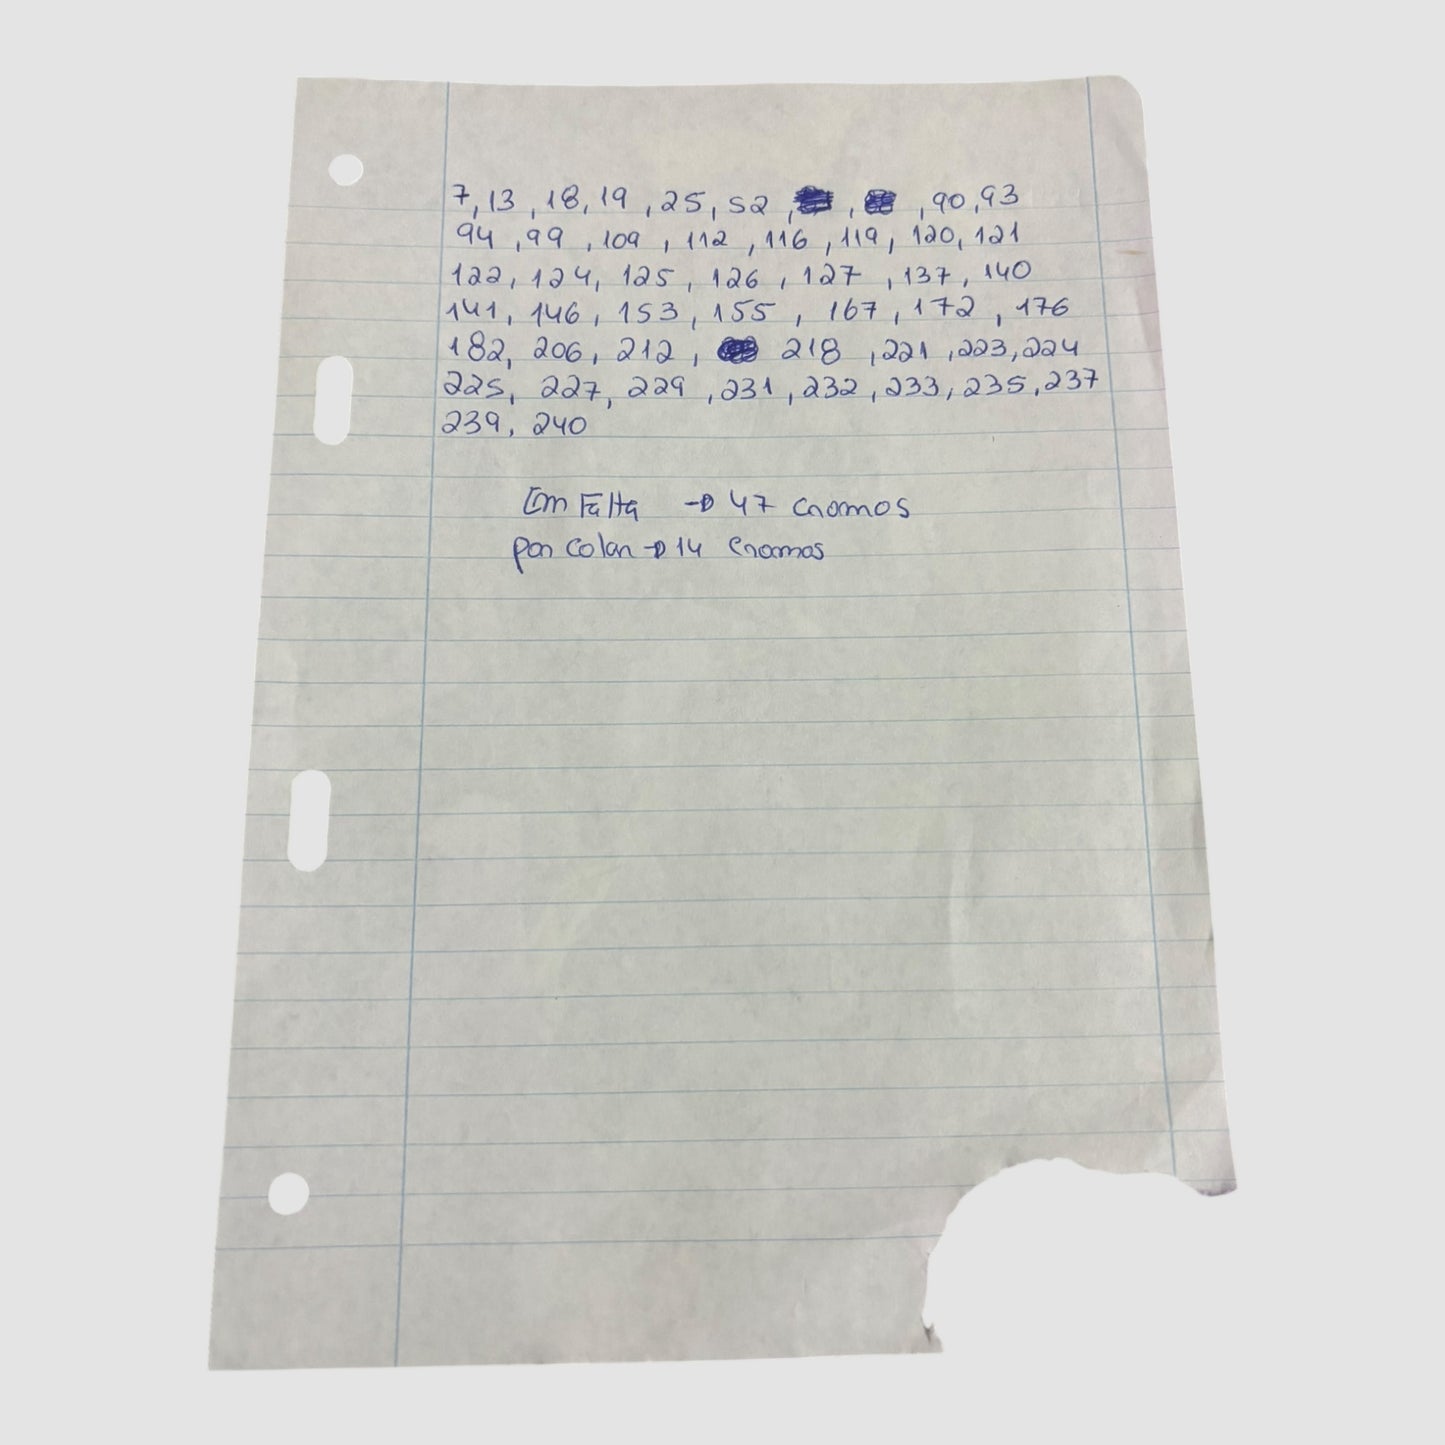 7, 13, 18, 19, 25, 52, , , 90, 93
94, 99, 109, 112, 116, 119, 120, 121
122, 124, 125, 126, 127, 137, 140
141, 146, 153, 155, 167, 172, 176
182, 206, 212, 218, 221, 223, 224
225, 227, 229, 231, 232, 233, 235, 237
239, 240
Em Falta → 47 Cromos
por Colar → 14 Cromos